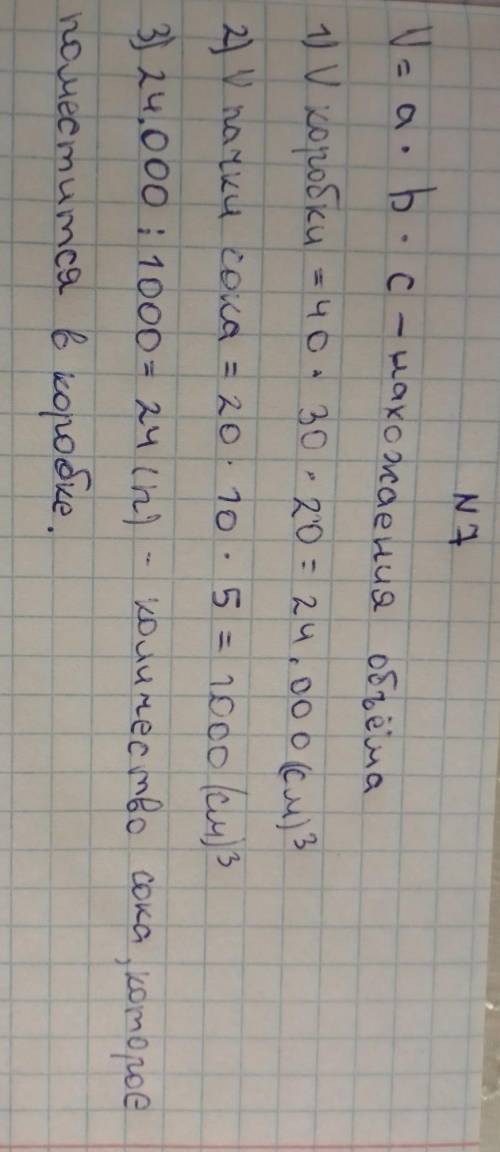 N7
V = a · b · c - нахожаения объёма
1) V коробки = 40 · 30 · 20 = 24.000 (см)³
2) V пачки сока = 20 · 10 · 5 = 1000 (см)³
3) 24.000 : 1000 = 24 (п) - количество сока, которое
поместится в коробке.